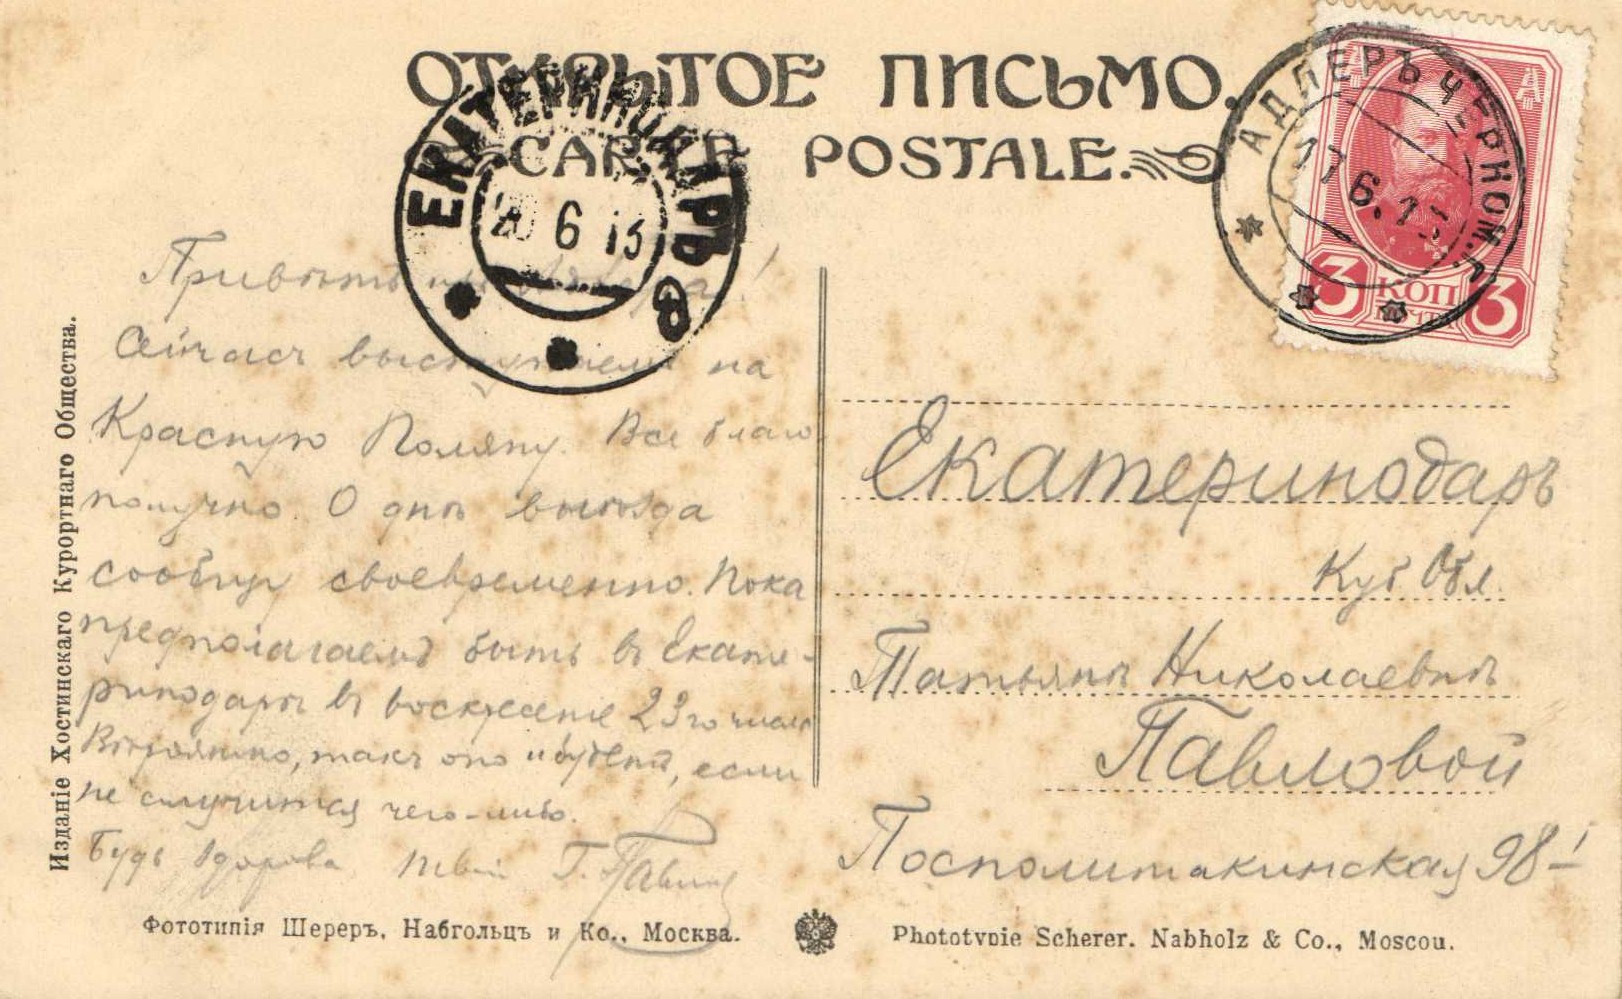 ОТКРЫТОЕ ПИСЬМО.
CARTE POSTALE.
ЕКАТЕРИНОДАРЪ
20 6 13
АДЛЕРЪ ЧЕРНОМ. Г.
17 6.13
3 КОП 3
ПОЧТА
Привѣтъ
Сейчасъ выступаемъ на
Красную Поляну. Все благо-
получно. О днѣ выѣзда
сообщу своевременно. Пока
предполагаемъ быть въ Екате-
ринодарѣ въ воскресенье 23го числа
Вѣроятно, такъ оно и будетъ, если
не случится чего-либо.
Будь здорова твой Г. Павлов
Екатеринодаръ
Куб Обл.
Татьянѣ Николаевнѣ
Павловой
Посполитакинская 98
Изданіе Хостинскаго Курортнаго Общества.
Фототипія Шереръ, Набгольцъ и Ко., Москва.
Phototypie Scherer, Nabholz & Co., Moscou.